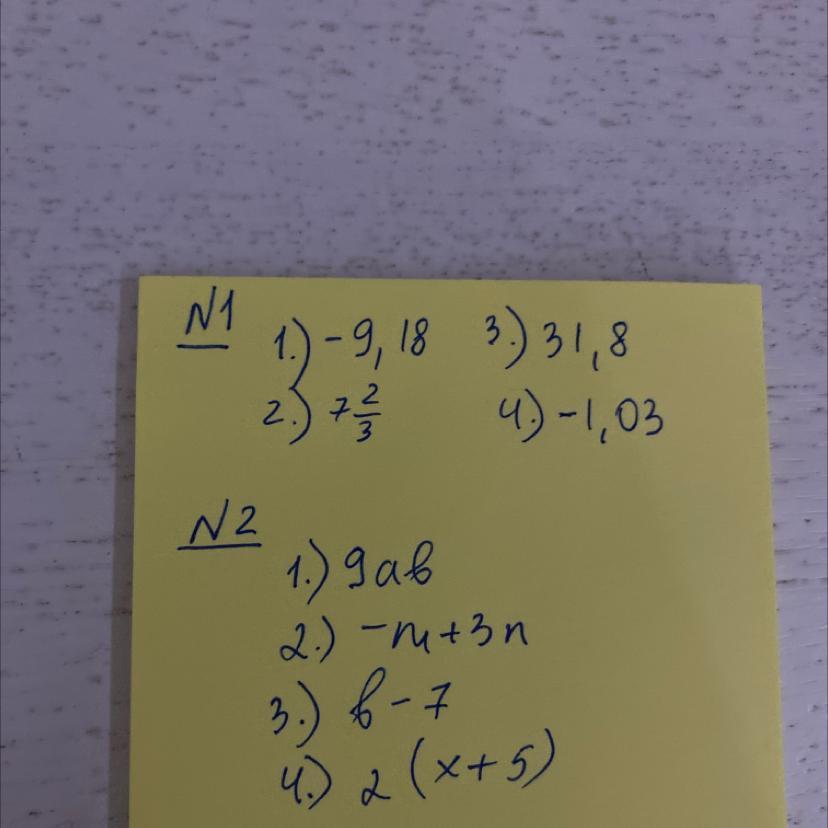 N1 1.) -9,18 3.) 31,8
2.) 7 2/3 4.) -1,03
N2
1.) 9ab
2.) -m+3n
3.) b-7
4.) 2(x+5)